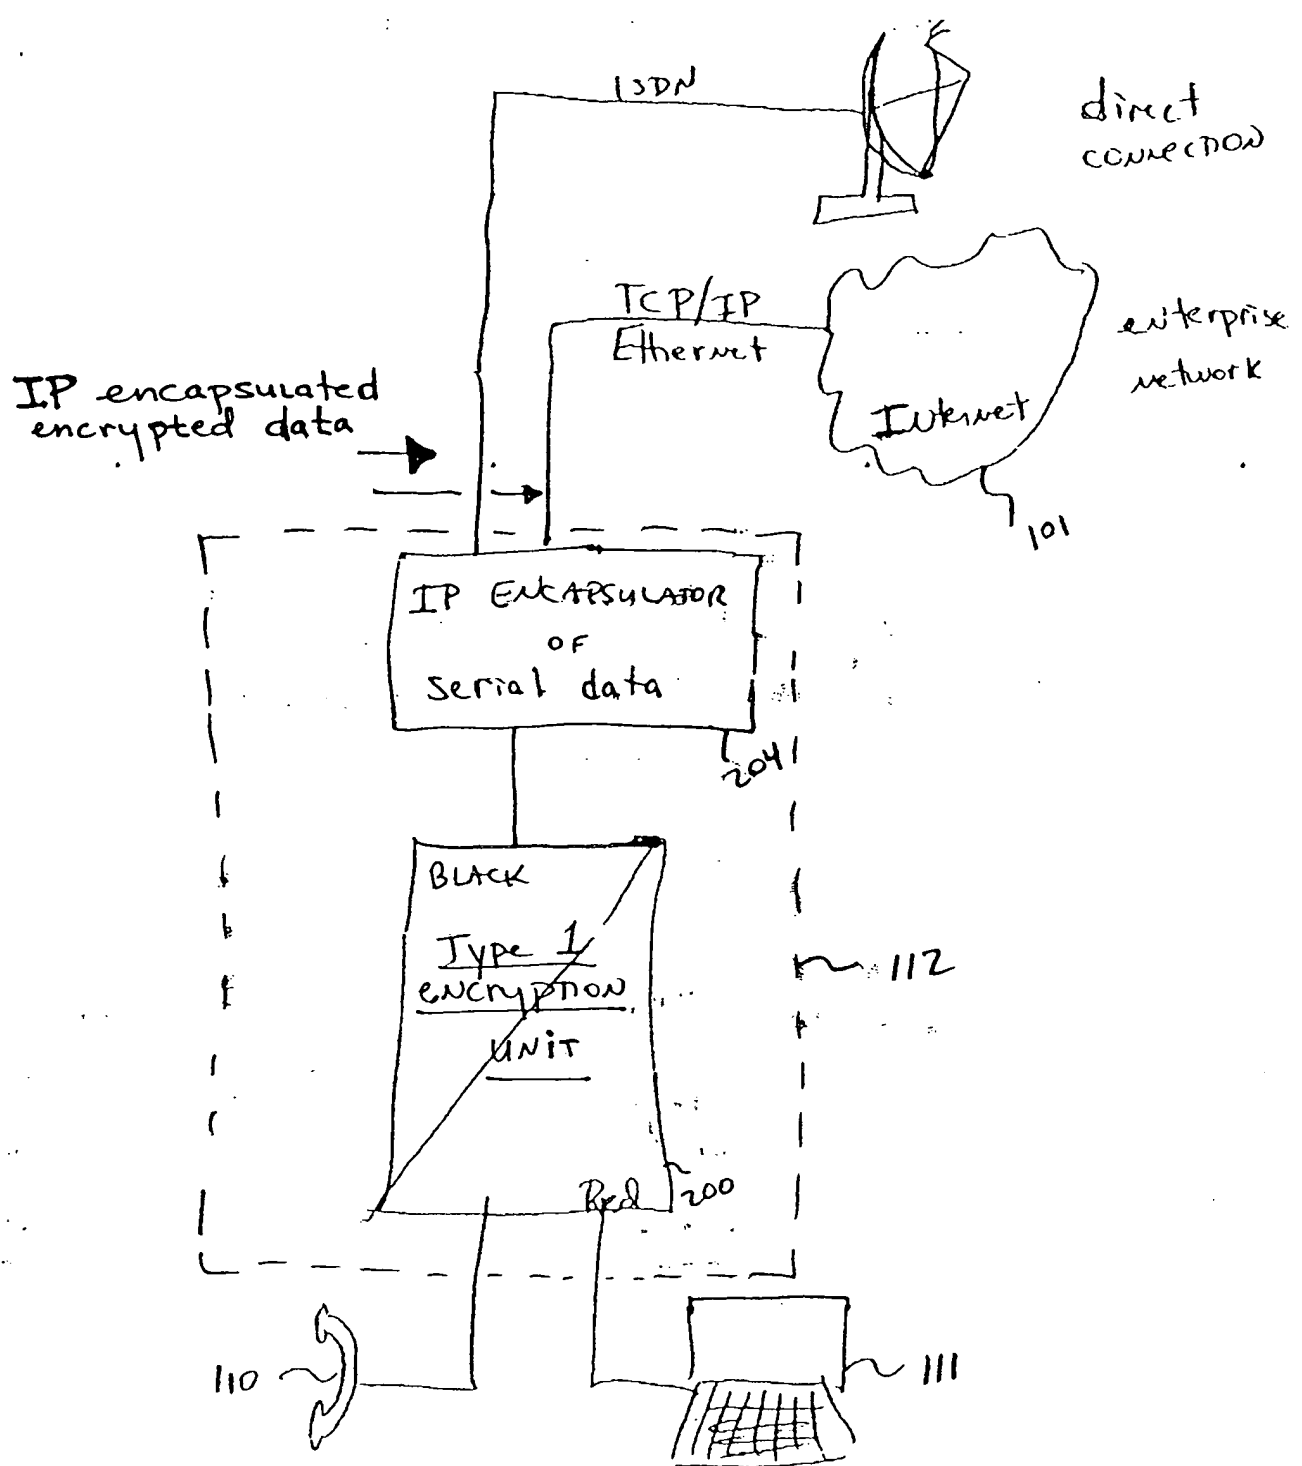 ISDN
direct
connection
TCP/IP
Ethernet
enterprise
network
Internet
IP encapsulated
encrypted data
101
IP ENCAPSULATOR
OF
serial data
204
BLACK
Type 1
encryption
UNIT
112
Red
200
110
111